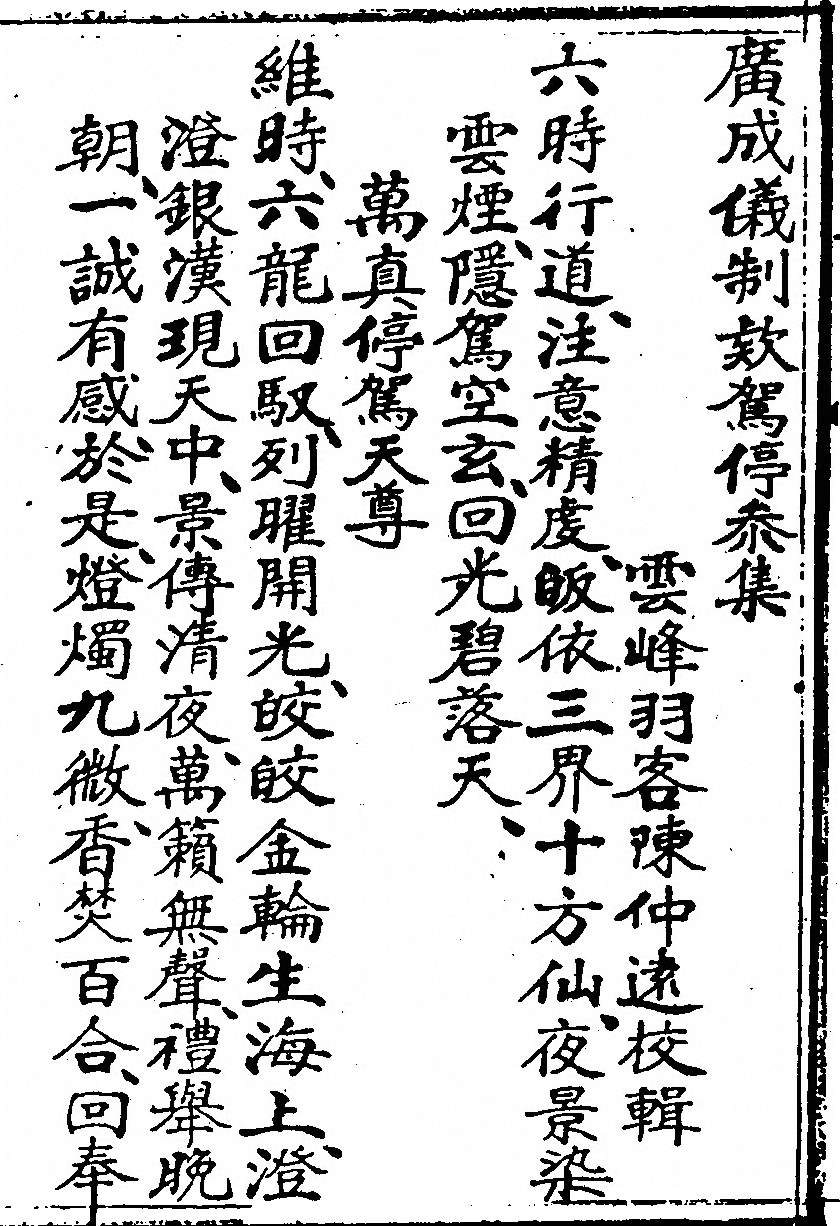 廣成儀制欸駕停叅集
雲峰羽客陳仲遠校輯
六時行道、注意精虔、皈依三界十方仙、夜景染
雲煙、隱駕空玄、回光碧落天、
萬真停駕天尊
維時、六龍回馭、列曜開光、皎皎金輪生海上、澄
澄銀漢現天中、景傳清夜、萬籟無聲、禮舉晚
朝、一誠有感、於是、燈燭九微、香焚百合、回奉